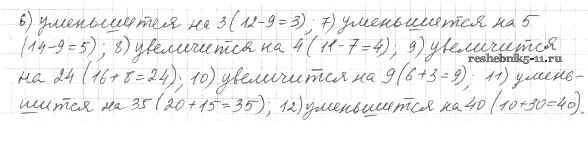 6) уменьшится на 3 (12-9=3); 7) уменьшится на 5
(14-9=5); 8) увеличится на 4 (11-7=4), 9) увеличится
reshebnik5-11.ru
на 24 (16+8=24); 10) увеличится на 9 (6+3=9); 11) умень-
шится на 35 (20+15=35); 12) уменьшится на 40 (10+30=40).